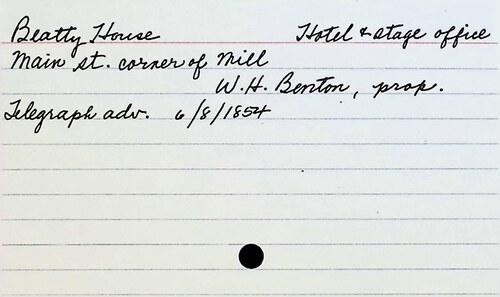 Beatty House Hotel & stage office
Main st. corner of Mill
W.H. Benton, prop.
Telegraph adv. 6/8/1854